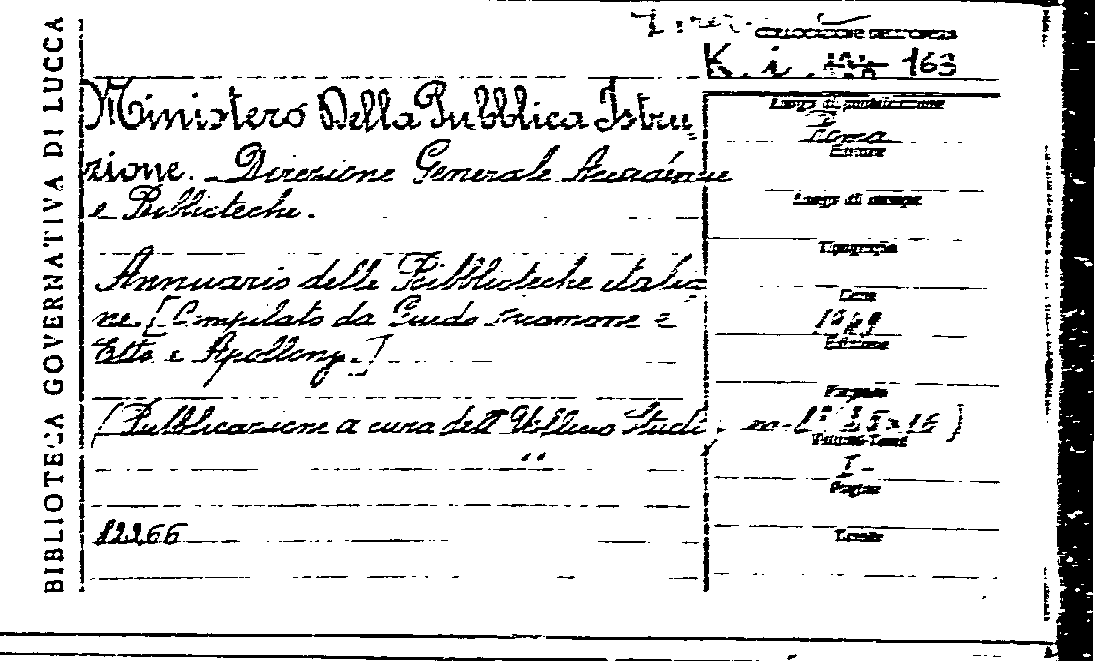 BIBLIOTECA GOVERNATIVA DI LUCCA
K. i. 163
Ministero Della Pubblica Istru
zione. Direzione Generale Accademie
e Biblioteche.
Annuario delle Biblioteche italia
ne. [Compilato da Guido e
Etto e Apollonj.]
[Pubblicazione a cura dell' Ufficio Studi, 15 × 16]
12266
Luogo di pubblicazione
Roma
Editore
Luogo di stampa
Tipografia
Data
1949
Edizione
Formato
Volumi-Tomi
I-
Pagine